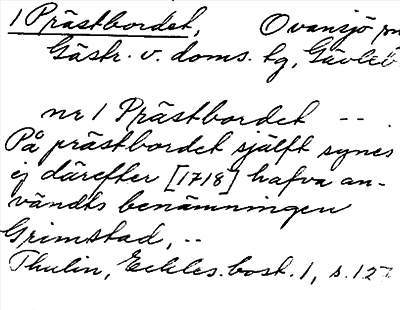 1 Prästbordet, Ovansjö
Gästr. v. doms. tg, Gävleb
nr 1 Prästbordet --.
På prästbordet själft synes
ej därefter [1718] hafva an-
vändts benämningen
Grimstad, --
Thulin, Eckles. bost. 1, s. 127